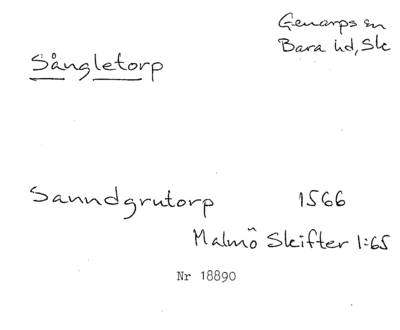 Genarps sn
Bara hd, Sk
Sångletorp
Sanndgrutorp 1566
Malmö Skifter 1:65
Nr 18890